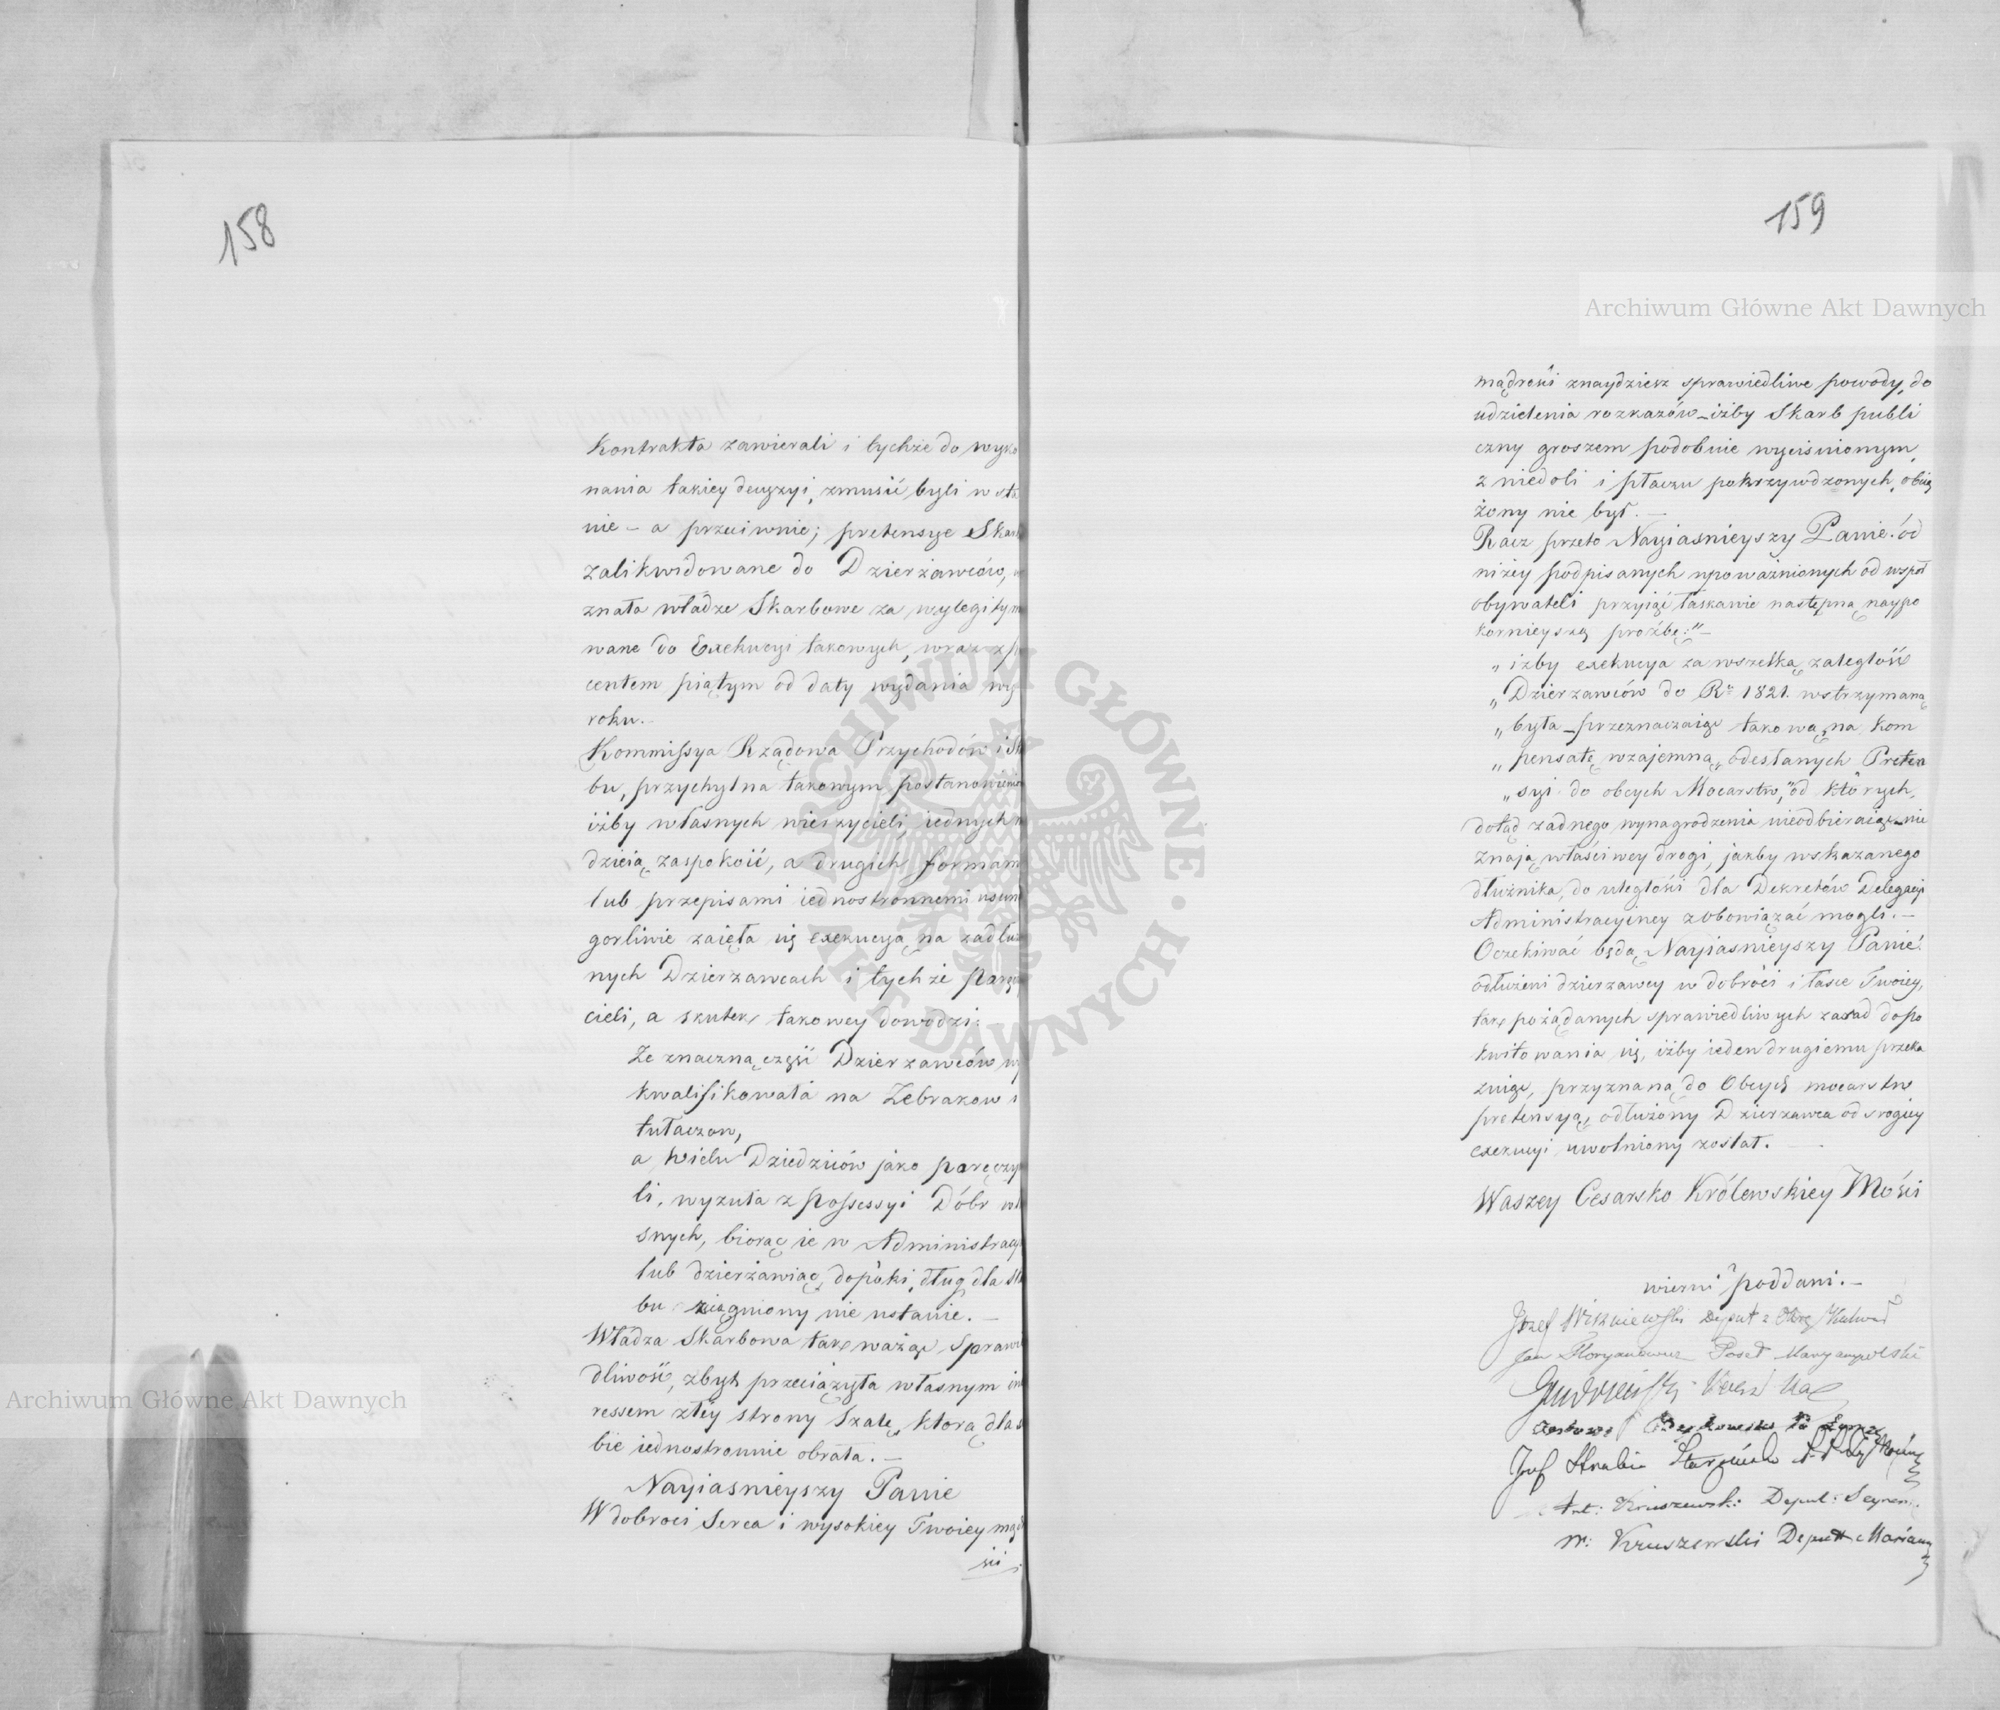 158
Kontrakta zawierali i tychże do wyko
nania takiey decyzyi, zmusić byli w sta
nie – a przeciwnie; pretensye Skar
zalikwidowane do Dzierżawców,
znała władze Skarbowe za wylegitym
wane do Exekucyi takowych, wraz z p
centem piątym od daty wydania wy
roku.
Kommissya Rządowa Przychodów i Sk
bu, przychylna takowym postanowieniom
iżby własnych wierzycieli, iednych n
dzieią zaspokoić, a drugich formam
lub przepisami iednostronnemi usun
gorliwie zaięła się exekucyą na zadłuż
nych Dzierzawcach i tychże Poręczy
cieli, a skutek takowey dowodzi:
Że znaczną część Dzierzawców wy
kwalifikowała na Żebrakow i
tułaczow,
a wielu Dziedziców jako poręczy
li, wyzuła z possessyi Dóbr wła
snych, biorąc ie w Administracy
lub dzierżawiąc, dopóki, dług dla Ska
bu ściągniony nie ustanie. –
Władza Skarbowa tak ważąc Sprawie
dliwość, zbyt przeciążyła własnym inte
ressem złéy strony Szalę, ktorą dla s
bie iednostronnie obrała. –
Nayiasnieyszy Panie
W dobroci Serca i wysokiey Twoiey mąd
ści
159
mądrości znaydziesz sprawiedliwe powody, do
udzielenia rozkazów – iżby Skarb publi
czny groszem podobnie wyciśnionym,
z niedoli i płaczu pokrzywdzonych, obcią
żony nie był. –
Racz przeto Nayiasnieyszy Panie! od
niżey podpisanych upoważnionych od wspoł
obywateli przyiąć łaskawie następną naypo
kornieyszą proźbę:" –
„ iżby exekucya za wszelką zaległość
„ Dzierzawców do Rᵘ 1821. wstrzymaną
„ była – przeznaczaiąc takową na kom
„ pensatę wzajemną, odesłanych Preten
„ syi do obcych Mocarstw," od których,
dotąd żadnego wynagrodzenia nieodbieraiąc – nie
znają właściwey drogi, jakby wskazanego
dłużnika, do uległości dla Dekretów Delegacyi
Administracyiney zobowiązać mogli. –
Oczekiwać będą Nayiasnieyszy Panie!
odłużeni dzierzawcy w dobroci i łasce Twoiey,
tak pożądanych sprawiedliwych zasad do po
kwitowania się, iżby ieden drugiemu przeka
zuiąc, przyznaną do Obcych mocarstw
pretensyą, odłużony Dzierzawca od srogiey
exekucyi uwolniony został. –
Waszey Cesarsko Królewskiey Mości
wierni poddani. –
Jozef Wiszniewski Deput z Okrę Kalwar
Jan Floryanowicz Poseł Maryampolski
Jozef Hrabia
Ant: Kruszewski Deput: Seynen
M: Kruszewski Deputt Mariam
Archiwum Główne Akt Dawnych
Archiwum Główne Akt Dawnych
ARCHIWUM GŁÓWNE AKT DAWNYCH